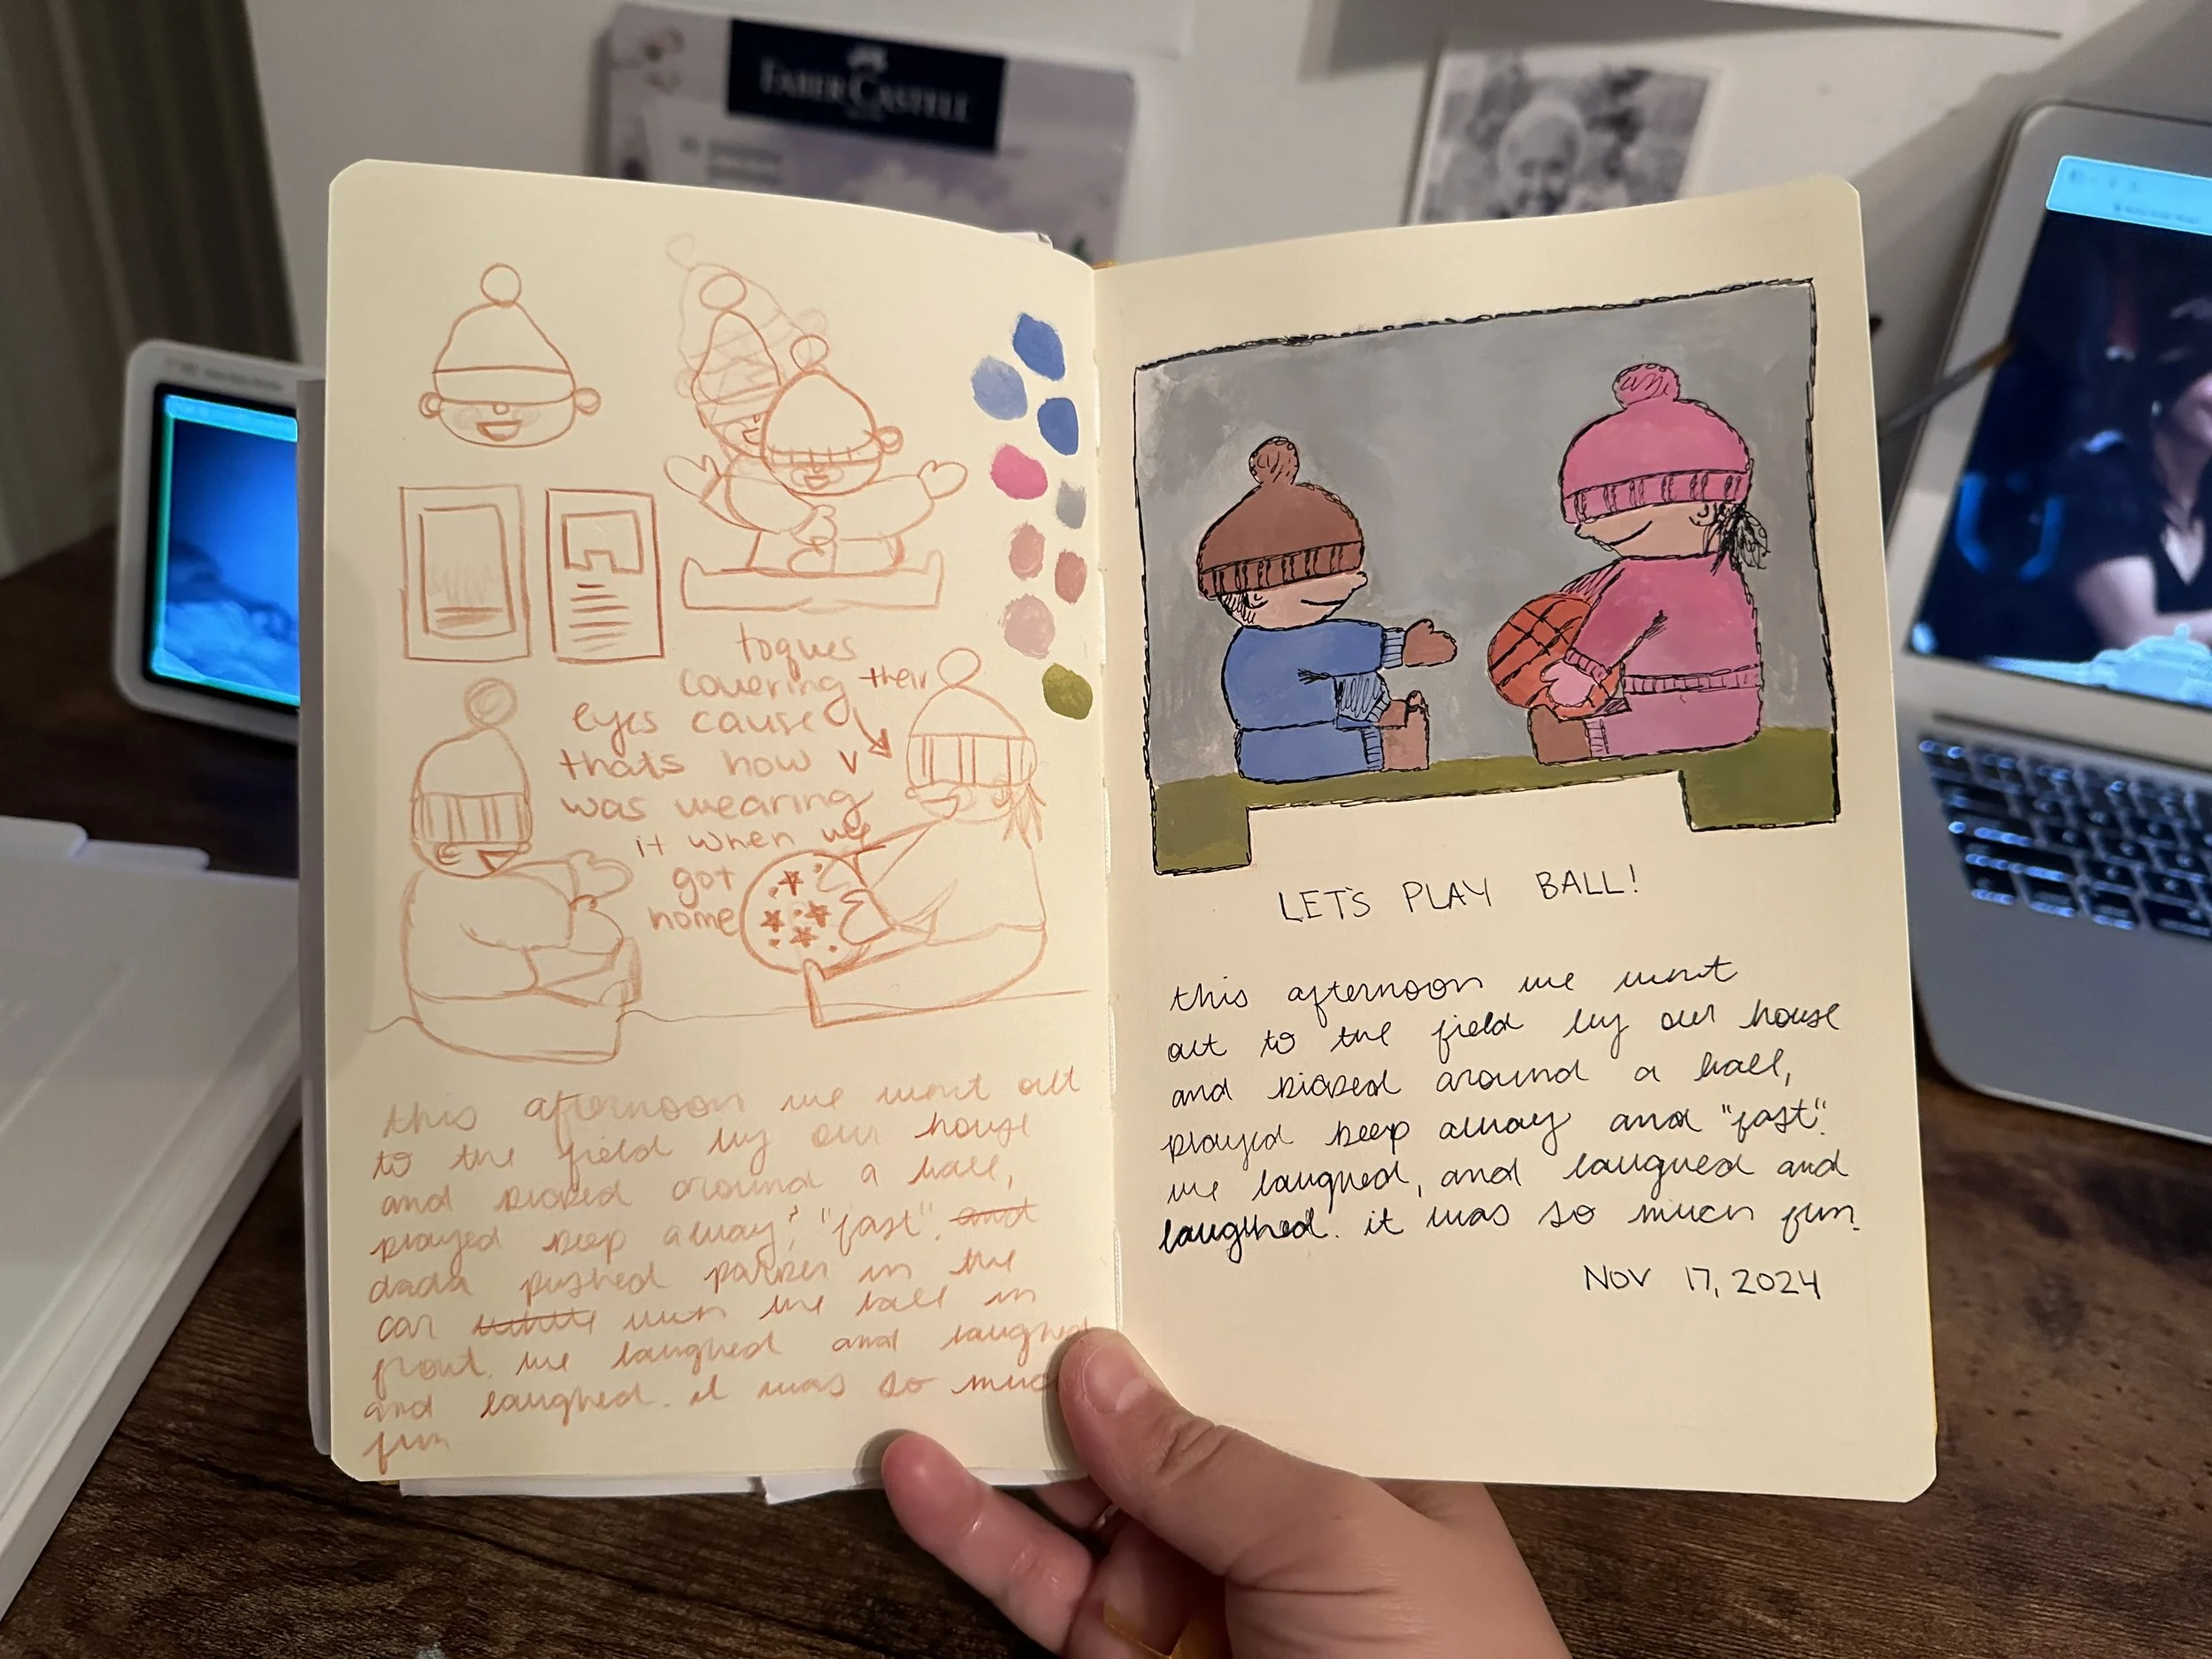 FABER-CASTELL
toques
covering their
eyes cause
thats how V
was wearing
it when we
got
home
this afternoon we went out
to the field by our house
and kicked around a ball,
played keep away, "fast". and
dada pushed parker in the
car with the ball in
front. we laughed and laughed
and laughed. it was so much
fun
LET'S PLAY BALL!
this afternoon we went
out to the field by our house
and kicked around a ball,
played keep away and "fast".
we laughed, and laughed and
laughed. it was so much fun.
NOV 17, 2024